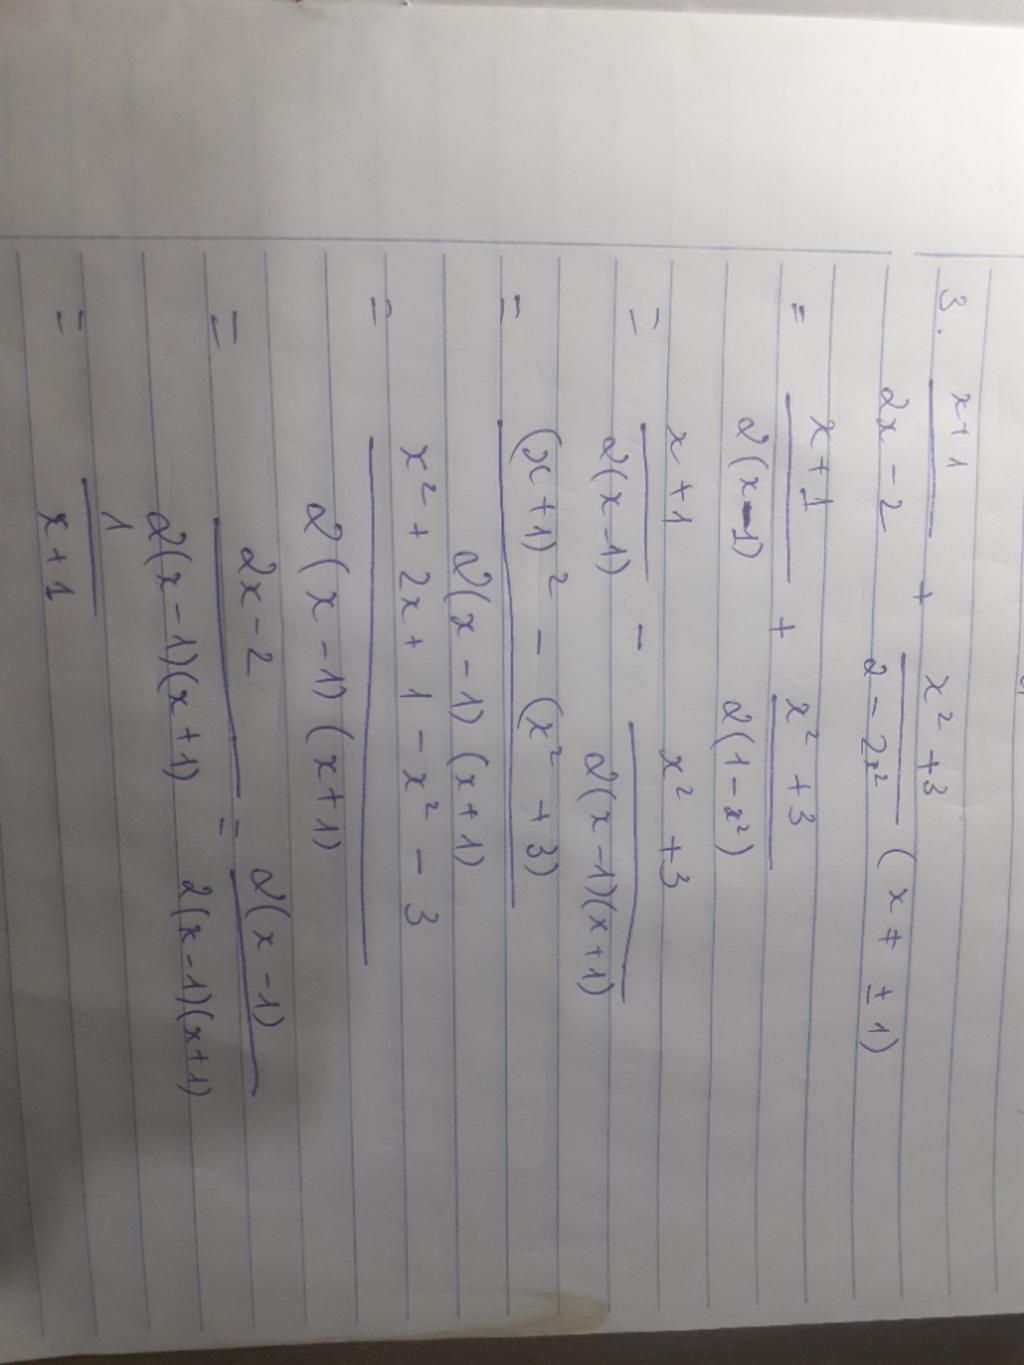 3. x+1 / 2x - 2 + x² + 3 / 2 - 2x² (x ≠ ± 1)
= x+1 / 2(x-1) + x² + 3 / 2(1-x²)
= x+1 / 2(x-1) - x² + 3 / 2(x-1)(x+1)
= (x+1)² - (x² + 3) / 2(x-1)(x+1)
= x² + 2x + 1 - x² - 3 / 2(x-1)(x+1)
= 2x-2 / 2(x-1)(x+1) = 2(x-1) / 2(x-1)(x+1)
= 1 / x+1